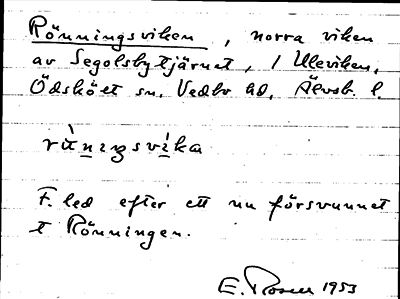 Rönningsviken, norra viken
av Segolsbytjärnet, / Ulleviken,
Ödskölt sn, Vedbo hd, Älvsb. l.
rù̀nıŋsvìka
F. led efter ett nu försvunnet
t Rönningen.
E. Rosell 1953